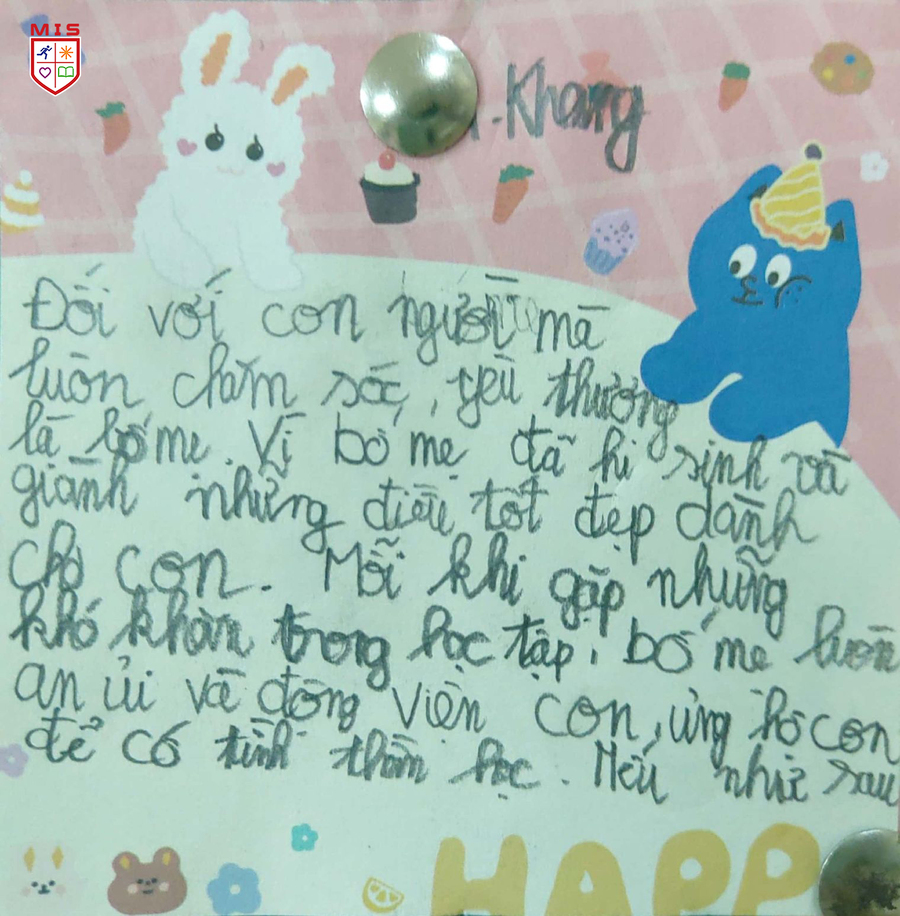 MIS
Khang
Đối với con người mà
luôn chăm sóc, yêu thương
là bố mẹ. Vì bố mẹ đã hi sinh và
giành những điều tốt đẹp dành
cho con. Mỗi khi gặp những
khó khăn trong học tập, bố mẹ luôn
an ủi và động viên con, ủng hộ con
để có tinh thần học. Nếu như sau
HAPP